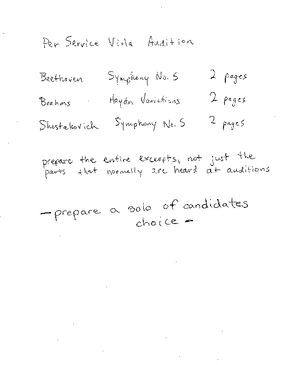 Per Service Viola Audition
Beethoven Symphony No. 5 2 pages
Brahms Haydn Variations 2 pages
Shostakovich Symphony No. 5 2 pages
prepare the entire excerpts, not just the
parts that normally are heard at auditions
- prepare a solo of candidates
choice -